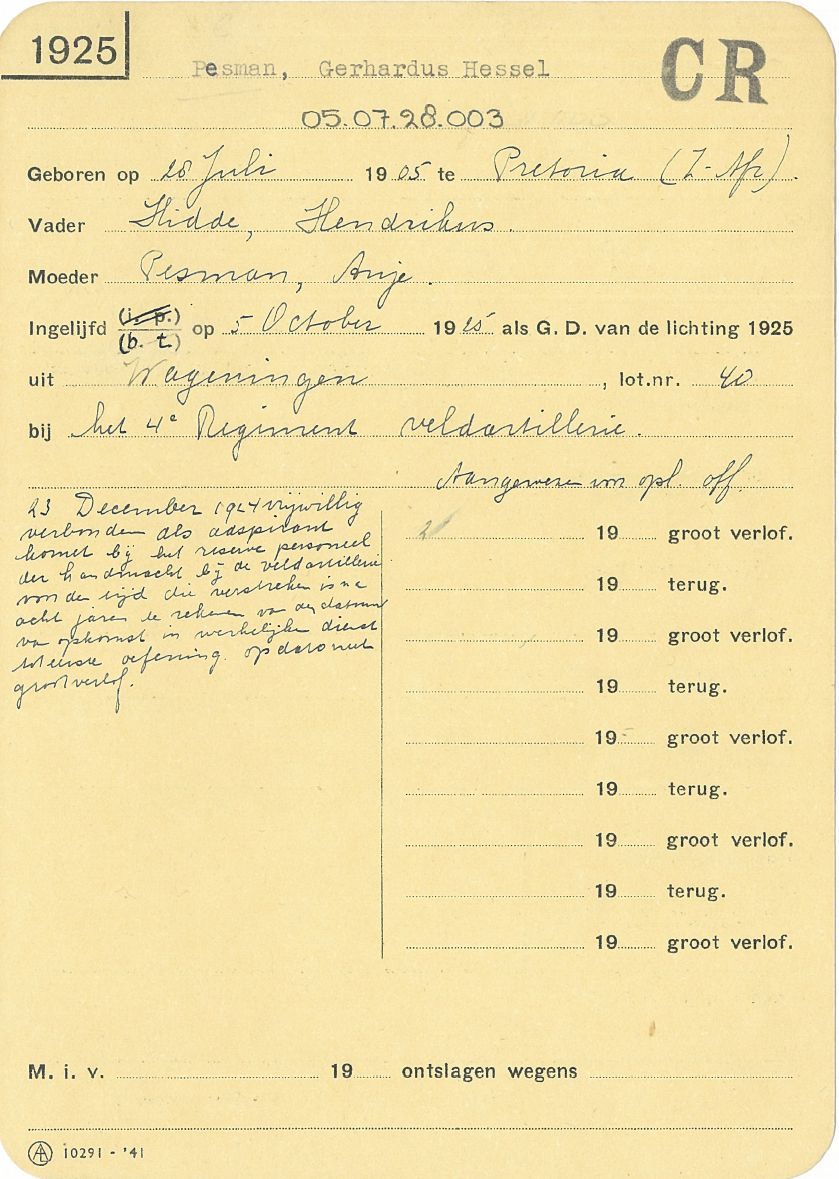 1925
Pesman, Gerhardus Hessel
CR
05.07.28.003
Geboren op 28 Juli 1905 te Pretoria (Z-Afr).
Vader Hidde, Hendrikus.
Moeder Pesman, Anje.
Ingelijfd (i. p.) (b. t.) op 5 October 1925 als G. D. van de lichting 1925
uit Wageningen, lot.nr. 40
bij het 4e Regiment veldartillerie.
Aangewezen voor opl. off.
23 December 1924 vrijwillig
verbonden als adspirant
kornet bij het reserve personeel
der landmacht bij de veldartillerie
voor den tijd die verstreken is na
acht jaren te rekenen van den datum
van opkomst in werkelijken dienst
tot eerste oefening. op dato met
grootverlof.
19 groot verlof.
19 terug.
19 groot verlof.
19 terug.
19 groot verlof.
19 terug.
19 groot verlof.
19 terug.
19 groot verlof.
M. i. v. 19 ontslagen wegens
10291 - '41